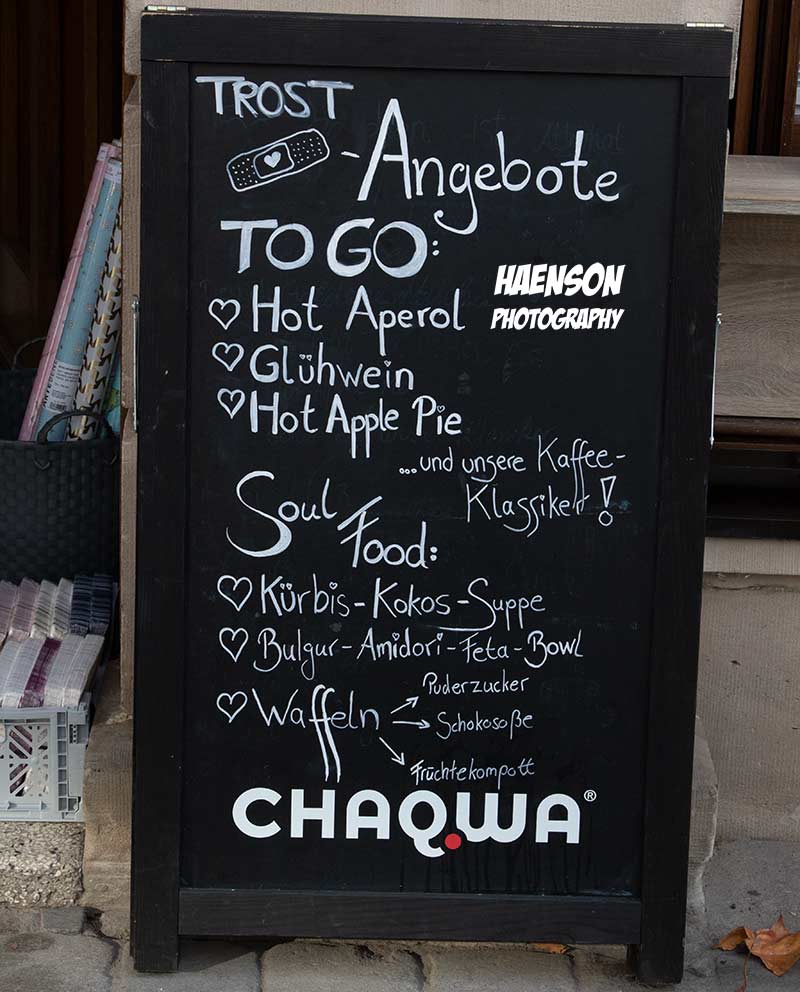 TROST
-Angebote
TO GO:
HAENSON
PHOTOGRAPHY
Hot Aperol
Glühwein
Hot Apple Pie
...und unsere Kaffee-
Klassiker!
Soul
Food:
Kürbis-Kokos-Suppe
Bulgur-Amidori-Feta-Bowl
Waffeln
Puderzucker
Schokosoße
Früchtekompott
CHAQWA®